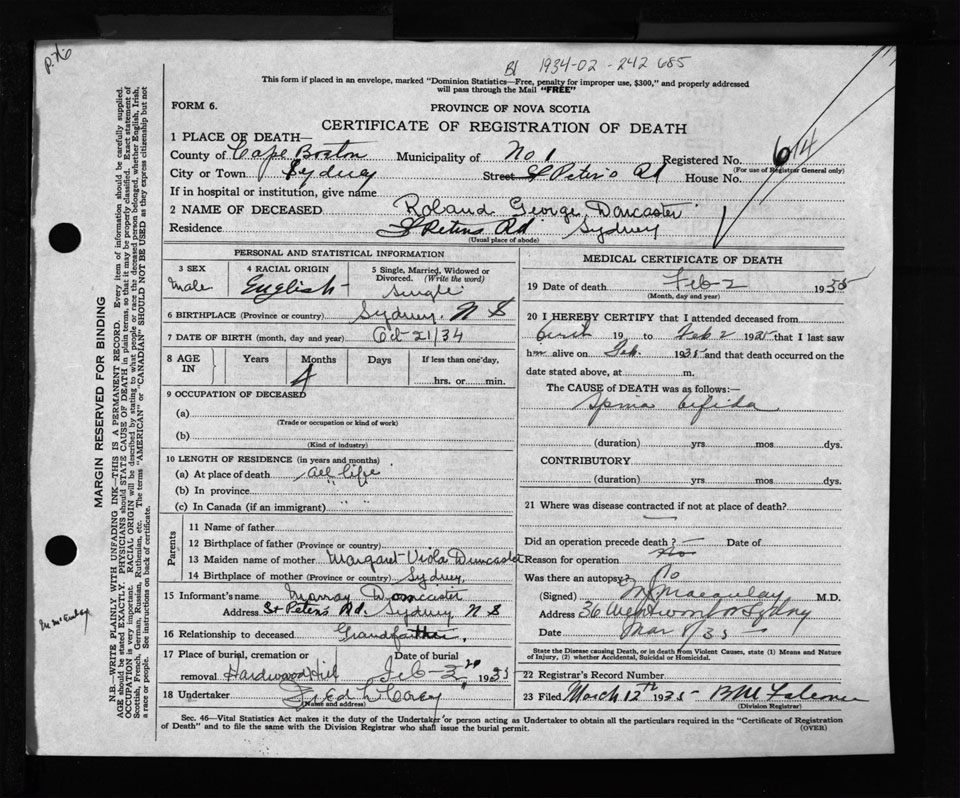 P. 76
B1 1934-02-242685
This form if placed in an envelope, marked "Dominion Statistics—Free, penalty for improper use, $300," and properly addressed
will pass through the Mail "FREE"
FORM 6.
PROVINCE OF NOVA SCOTIA
CERTIFICATE OF REGISTRATION OF DEATH
1 PLACE OF DEATH—
County of Cape Breton Municipality of No 1 Registered No. 614
(For use of Registrar General only)
City or Town Sydney Street St Peter's Rd House No.
If in hospital or institution, give name
2 NAME OF DECEASED Roland George Doncaster
Residence St Peters Rd Sydney
(Usual place of abode)
PERSONAL AND STATISTICAL INFORMATION
3 SEX
Male
4 RACIAL ORIGIN
English
5 Single, Married, Widowed or
Divorced. (Write the word)
Single
6 BIRTHPLACE (Province or country) Sydney. N S
7 DATE OF BIRTH (month, day and year) Oct 21/34
8 AGE IN
Years
Months
4
Days
If less than one day,
hrs. or min.
9 OCCUPATION OF DECEASED
(a)
(Trade or occupation or kind of work)
(b)
(Kind of industry)
10 LENGTH OF RESIDENCE (in years and months)
(a) At place of death all life
(b) In province " "
(c) In Canada (if an immigrant) " "
Parents
11 Name of father
12 Birthplace of father (Province or country)
13 Maiden name of mother Margaret Viola Duncaster
14 Birthplace of mother (Province or country) Sydney,
15 Informant's name Murray Doncaster
Address St Peters Rd. Sydney N S
16 Relationship to deceased Grandfather.
17 Place of burial, cremation or Date of burial
removal Hardwood Hill Feb 3 1935
18 Undertaker
(Name and address)
MEDICAL CERTIFICATE OF DEATH
19 Date of death Feb-2 1935
(Month, day and year)
20 I HEREBY CERTIFY that I attended deceased from
birth 19 to Feb 2 1935 that I last saw
him alive on Feb. 1935 and that death occurred on the
date stated above, at m.
The CAUSE of DEATH was as follows:—
Spina bifida
(duration) yrs mos dys.
CONTRIBUTORY
(duration) yrs. mos. dys.
21 Where was disease contracted if not at place of death?
Did an operation precede death? No Date of
Reason for operation
Was there an autopsy? No
(Signed) Macaulay M.D.
Address 36 Sydney
Date Mar 8/35
State the Disease causing Death, or in death from Violent Causes, state (1) Means and Nature of Injury, (2) whether Accidental, Suicidal or Homicidal.
22 Registrar's Record Number
23 Filed March 12th 1935
(Division Registrar)
Sec. 46—Vital Statistics Act makes it the duty of the Undertaker or person acting as Undertaker to obtain all the particulars required in the "Certificate of Registration
of Death" and to file the same with the Division Registrar who shall issue the burial permit. (OVER)
MARGIN RESERVED FOR BINDING
N.B.—WRITE PLAINLY WITH UNFADING INK—THIS IS A PERMANENT RECORD. Every item of information should be carefully supplied.
AGE should be stated EXACTLY. PHYSICIANS should STATE CAUSE OF DEATH in plain terms, so that it may be properly classified. Exact statement of
OCCUPATION is very important. RACIAL ORIGIN will be described by stating to what people or race the deceased person belonged, whether English, Irish,
Scottish, French, German, Russian, Ruthenian, etc. The terms "AMERICAN" or "CANADIAN" SHOULD NOT BE USED as they express citizenship but not
a race or people. See instructions on back of certificate.